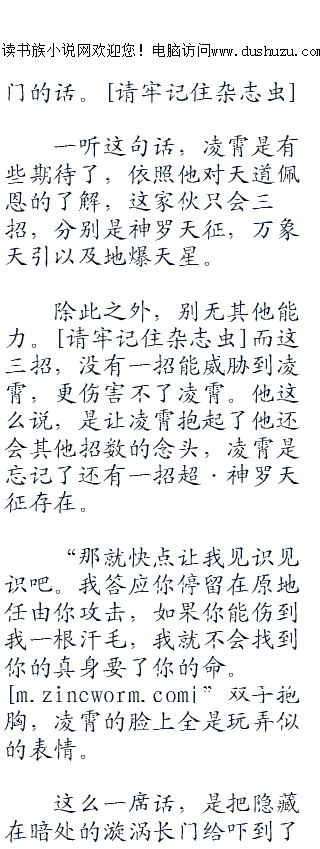 读书族小说网欢迎您！电脑访问www.dushuzu.com
门的话。[请牢记住杂志虫]
一听这句话，凌霄是有
些期待了，依照他对天道佩
恩的了解，这家伙只会三
招，分别是神罗天征，万象
天引以及地爆天星。
除此之外，别无其他能
力。[请牢记住杂志虫]而这
三招，没有一招能威胁到凌
霄，更伤害不了凌霄。他这
么说，是让凌霄抱起了他还
会其他招数的念头，凌霄是
忘记了还有一招超·神罗天
征存在。
“那就快点让我见识见
识吧。我答应你停留在原地
任由你攻击，如果你能伤到
我一根汗毛，我就不会找到
你的真身要了你的命。
[m.zincworm.com¡”双手抱
胸，凌霄的脸上全是玩弄似
的表情。
这么一席话，是把隐藏
在暗处的漩涡长门给吓到了